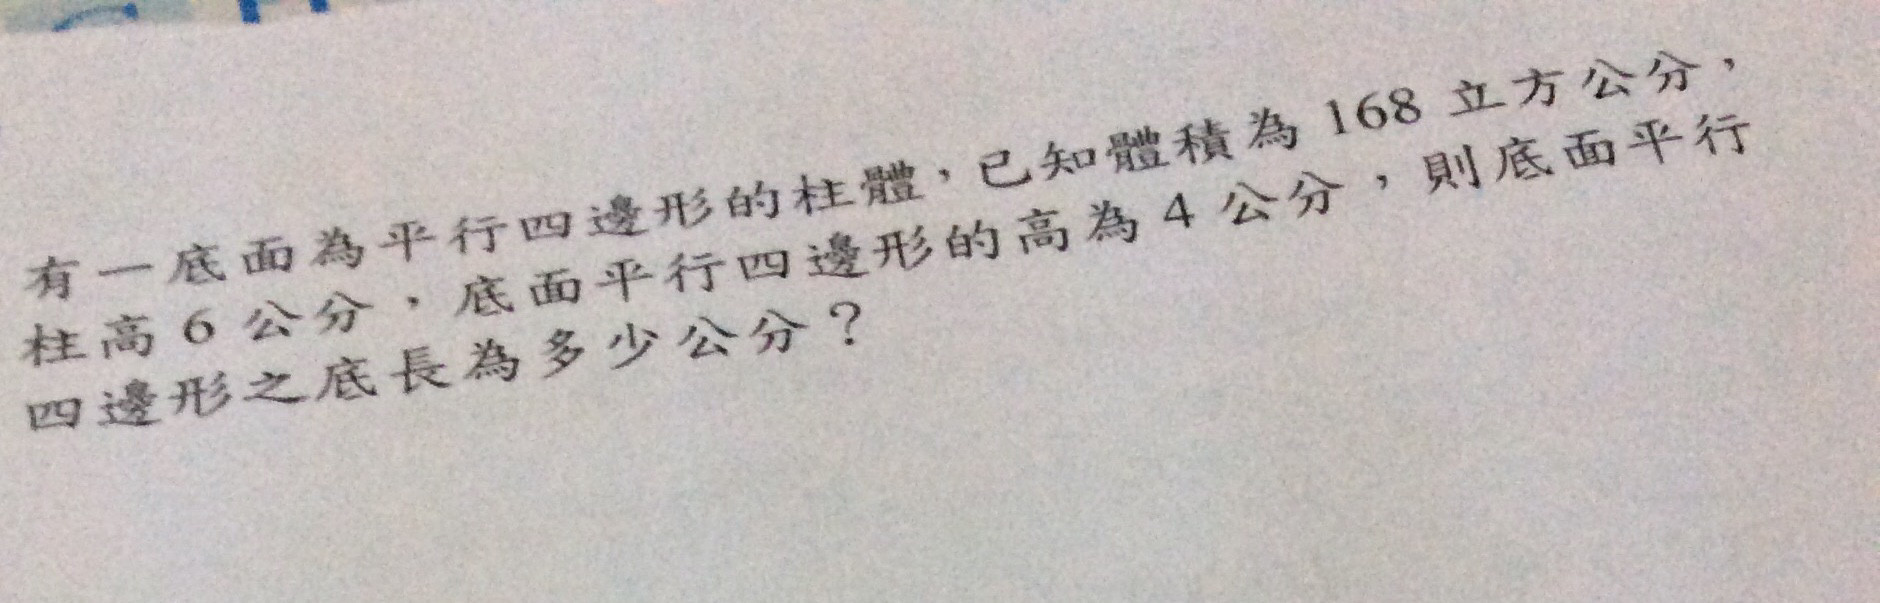 有一底面為平行四邊形的柱體，已知體積為 168 立方公分，
柱高 6 公分，底面平行四邊形的高為 4 公分，則底面平行
四邊形之底長為多少公分？